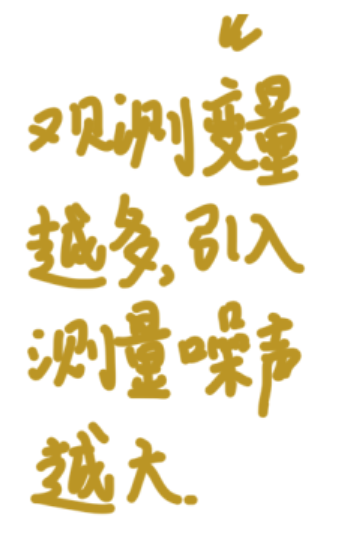 观测变量
越多,引入
测量噪声
越大.